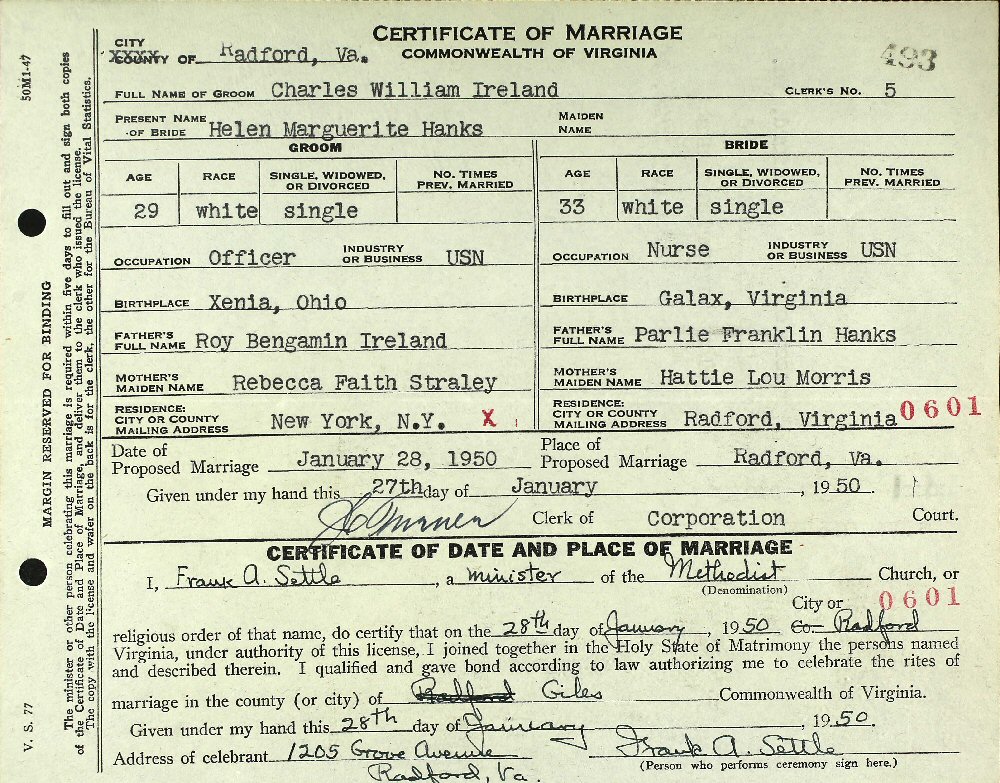 CERTIFICATE OF MARRIAGE
COMMONWEALTH OF VIRGINIA
493
CITY
XXXXX
COUNTY OF Radford, Va.
FULL NAME OF GROOM Charles William Ireland CLERK'S NO. 5
PRESENT NAME OF BRIDE Helen Marguerite Hanks MAIDEN NAME
GROOM BRIDE
AGE RACE SINGLE, WIDOWED, OR DIVORCED NO. TIMES PREV. MARRIED AGE RACE SINGLE, WIDOWED, OR DIVORCED NO. TIMES PREV. MARRIED
29 white single 33 white single
OCCUPATION Officer INDUSTRY OR BUSINESS USN OCCUPATION Nurse INDUSTRY OR BUSINESS USN
BIRTHPLACE Xenia, Ohio BIRTHPLACE Galax, Virginia
FATHER'S FULL NAME Roy Bengamin Ireland FATHER'S FULL NAME Parlie Franklin Hanks
MOTHER'S MAIDEN NAME Rebecca Faith Straley MOTHER'S MAIDEN NAME Hattie Lou Morris
RESIDENCE: CITY OR COUNTY MAILING ADDRESS New York, N.Y. X RESIDENCE: CITY OR COUNTY MAILING ADDRESS Radford, Virginia 0601
Date of Proposed Marriage January 28, 1950 Place of Proposed Marriage Radford, Va.
Given under my hand this 27th day of January, 1950.
Clerk of Corporation Court.
CERTIFICATE OF DATE AND PLACE OF MARRIAGE
I, Frank A. Settle, a minister of the Methodist Church, or
(Denomination)
City or 0601
religious order of that name, do certify that on the 28th day of January, 1950 Co. Radford
Virginia, under authority of this license, I joined together in the Holy State of Matrimony the persons named
and described therein. I qualified and gave bond according to law authorizing me to celebrate the rites of
marriage in the county (or city) of Radford Giles Commonwealth of Virginia.
Given under my hand this 28th day of January, 1950.
Address of celebrant 1205 Grove Avenue Frank A. Settle
Radford, Va. (Person who performs ceremony sign here.)
50M1-47
MARGIN RESERVED FOR BINDING
V. S. 77
The minister or other person celebrating this marriage is required within five days to fill out and sign both copies
of the Certificate of Date and Place of Marriage, and deliver them to the clerk who issued the license.
The copy with the license and wafer on the back is for the clerk, the other for the Bureau of Vital Statistics.